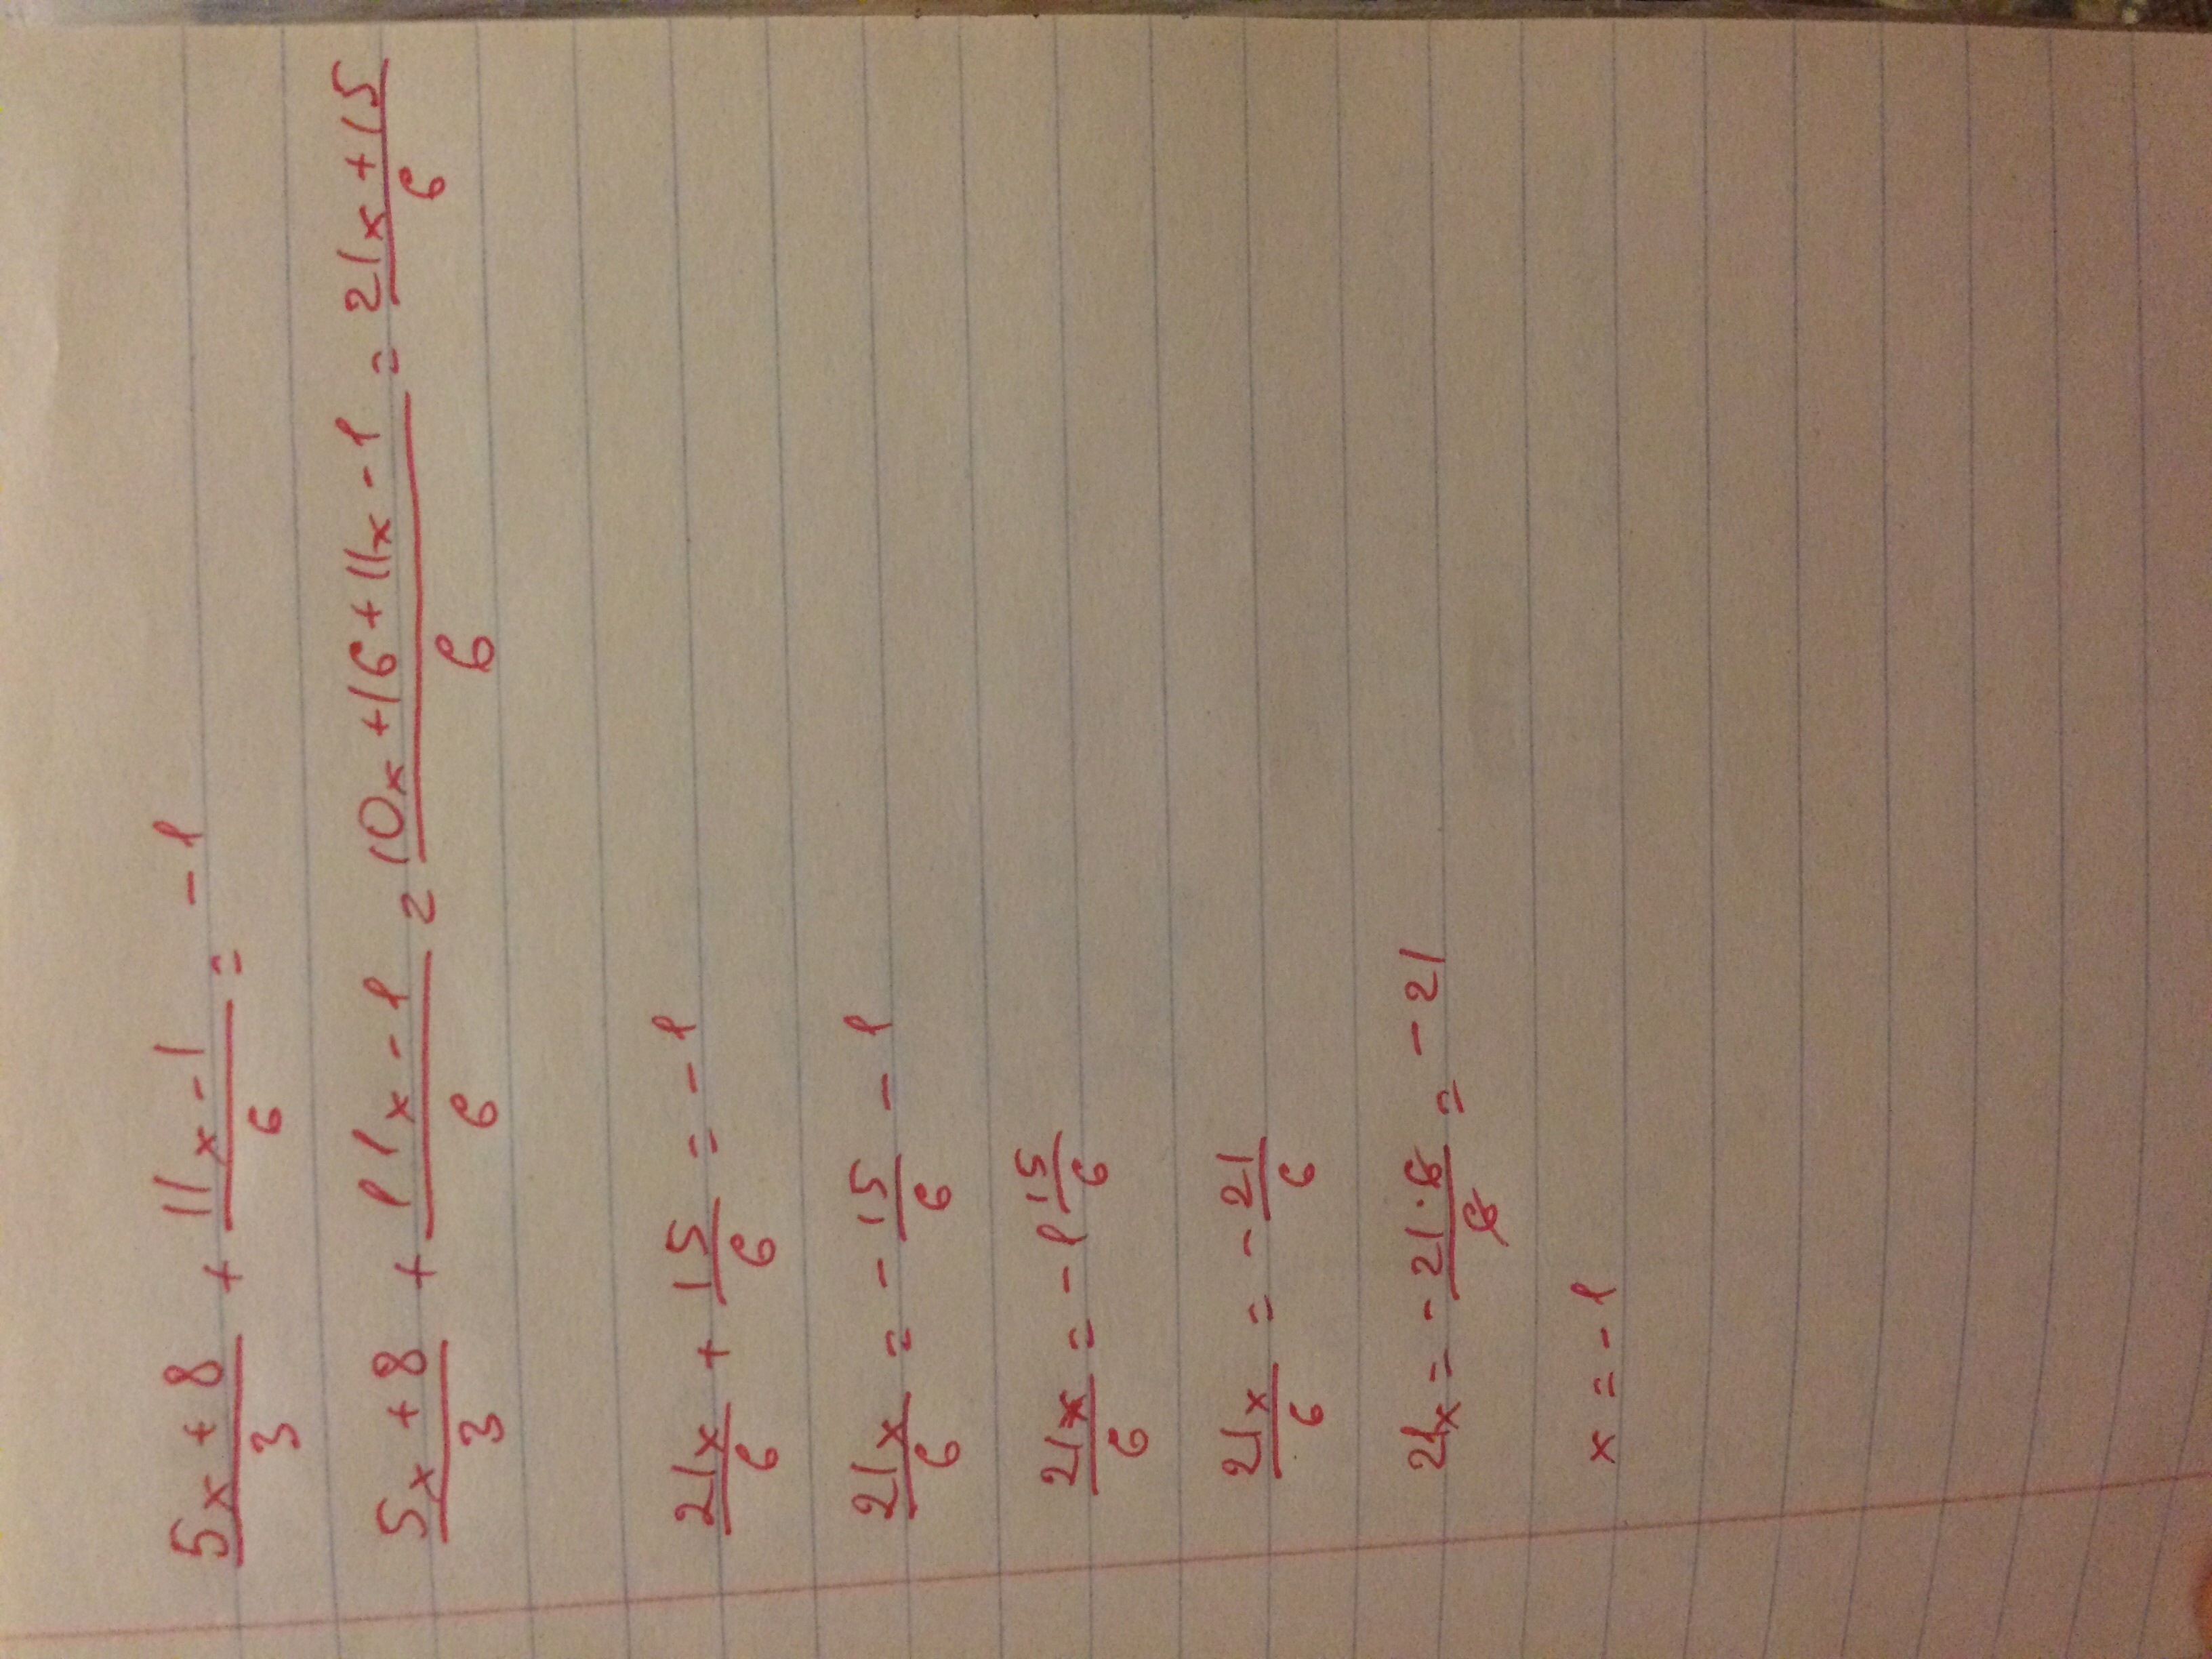 (5x + 8)/3 + (11x - 1)/6 = - 1
(5x + 8)/3 + (11x - 1)/6 = (10x + 16 + 11x - 1)/6 = (21x + 15)/6
21x/6 + 15/6 = - 1
21x/6 = - 15/6 - 1
21x/6 = - 1 15/6
21x/6 = - 21/6
21x = - (21 · 6)/6 = - 21
x = - 1